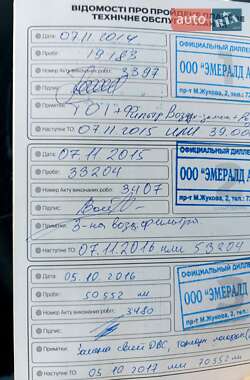 ВІДОМОСТІ ПРО ПРОЙДЕНЕ
ТЕХНІЧНЕ ОБСЛУ
AUTO RIA
Дата: 07.11.2014
Пробіг: 19183
Номер Акту виконаних робіт: 3397
Підпис:
Примітки: ТО1 + Фильтр Возд.
Наступне ТО: 07.11.2015 или 39.0
ОФИЦИАЛЬНЫЙ ДИЛЕР
ООО "ЭМЕРАЛД А
пр-т М.Жукова, 2, тел.: 7
Дата: 07.11.2015
Пробіг: 33204
Номер Акту виконаних робіт: 3407
Підпис:
Примітки: З-на возд. фильтра
Наступне ТО: 07.11.2016 или 53204
ОФИЦИАЛЬНЫЙ ДИЛЕР
ООО "ЭМЕРАЛД
пр-т М.Жукова, 2
Дата: 05.10.2016
Пробіг: 50552 км
Номер Акту виконаних робіт: 3480
Підпис:
Примітки: свечей ДВС,
Наступне ТО: 05.10.2017 или 70552 км
ОФИЦИАЛЬНЫЙ
ООО "ЭМЕРАЛД
пр-т М.Жукова, 2